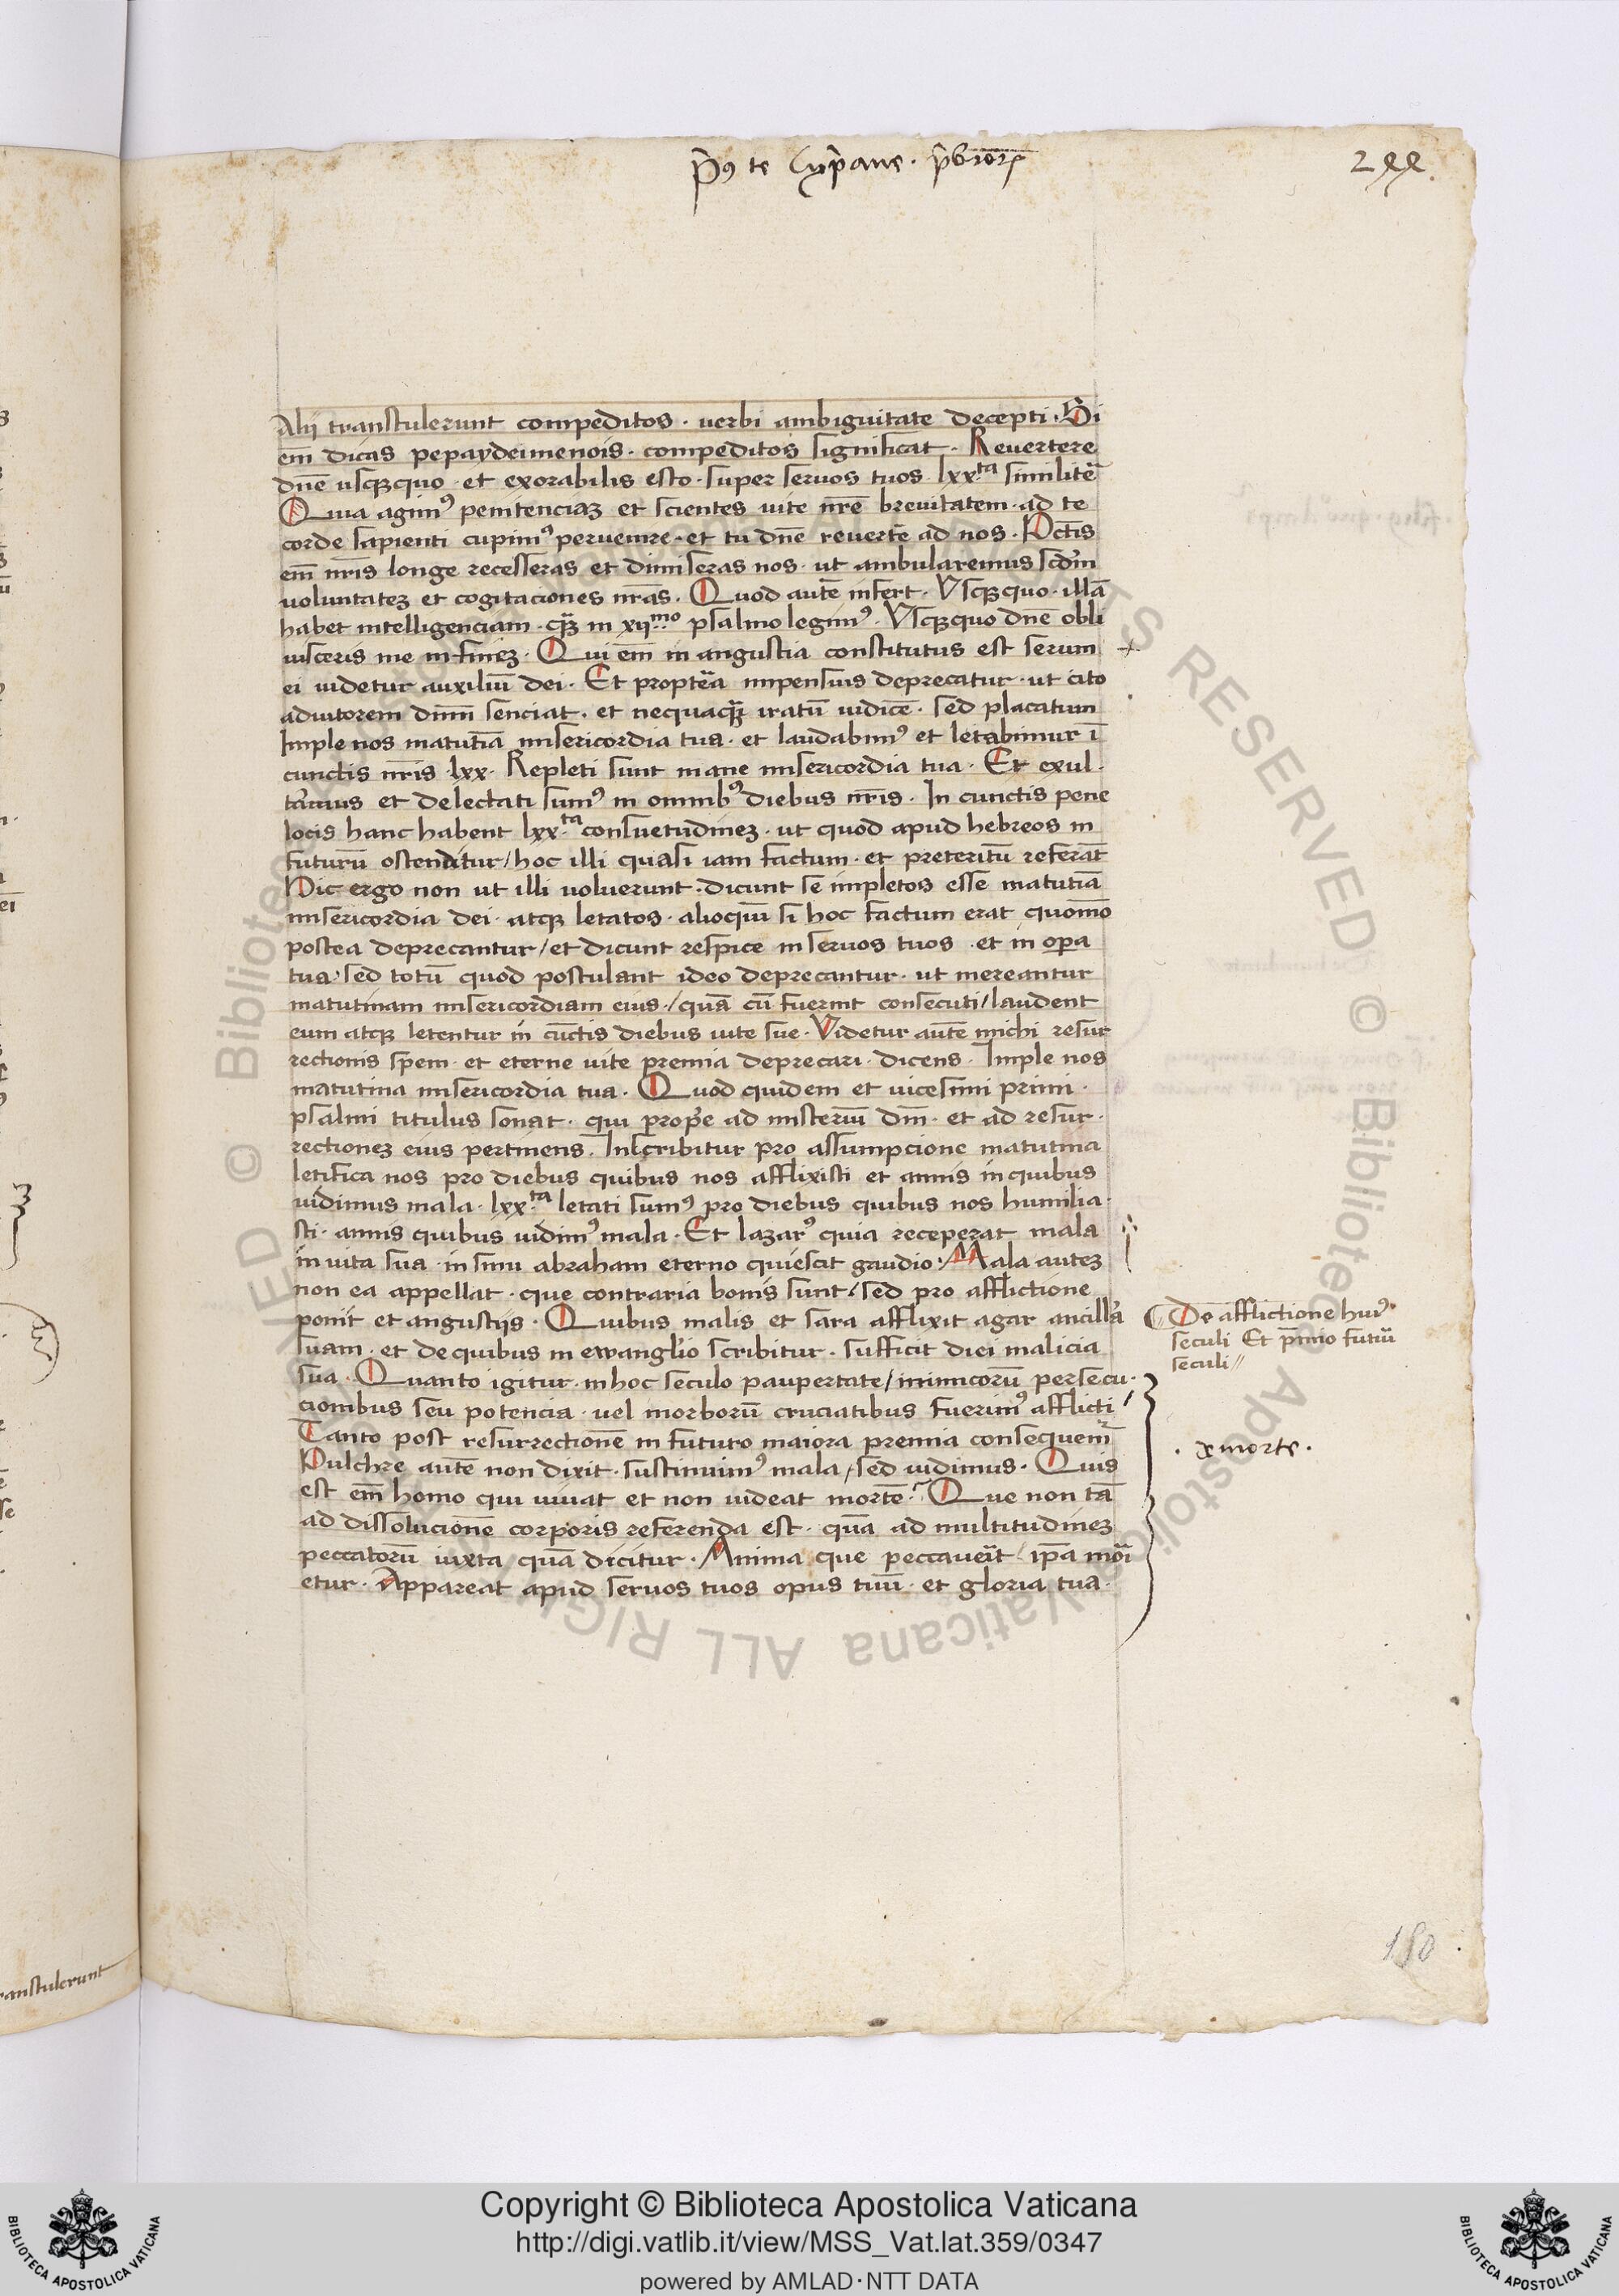 P9 te Cyp̄ane · p̄br̄or
Alij transtulerunt compeditos · uerbi ambiguitate decepti · Si
em̄ dicas pepaydeimenois · compeditos significat · Reuertere
dn̄e usq̨quo · et exorabilis esto · super seruos tuos · lxx.ta similit̄
Quia agim⁹ penitenciaꝫ et scientes uite nr̄e breuitatem · ad te
corde sapienti cupim⁹ peruenire · et tu dn̄e reuert̄e ad nos · Pct̄is
em̄ nr̄is longe recesseras et dimiseras nos · ut ambularemus scd̄m
uoluntateꝫ et cogitaciones nr̄as · Quod aut̄e infert · Vsq̨quo · illā
habet intelligenciam · quā in xij.mo psalmo legim⁹ · Vsq̨quo dn̄e obli
uisceris me in fineꝫ · Qui em̄ in angustia constitutus est serum
ei uidetur auxiliū dei · Et propt̄ea impensius deprecatur · ut cito
adiutorem dn̄m senciat · et nequaq̄ iratū iudicē · sed placatum
Imple nos matutīa misericordia tua · et laudabim⁹ et letabimur ī
cunctis nr̄is · lxx · Repleti sunt mane misericordia tua · Et exul ·
tauimus et delectati sum⁹ in omnib⁹ diebus nr̄is · In cunctis pene
locis hanc habent lxx.ta consuetudineꝫ · ut quod apud hebreos in
futurū ostenditur / hoc illi quasi iam factum · et preteritū referāt
Hic ergo non ut illi uoluerunt · dicunt se impletos esse matutīa
misericordia dei · atq̨ letatos · alioquī si hoc factum erat quomō
postea deprecantur / et dicunt respice in seruos tuos · et in op̄a
tua · sed totū quod postulant ideo deprecantur · ut mereantur
matutinam misericordiam eius · / quā cū fuerint consecuti / laudent
eum atq̨ letentur in cūctis diebus uite sue · Videtur aut̄e michi resur
rectionis spem · et eterne uite premia deprecari · dicens · Imple nos
matutina misericordia tua · Quod quidem et uicesimi primi ·
psalmi titulus sonat · qui prop̄e ad misteriū dn̄i · et ad resur ·
rectioneꝫ eius pertinens · Inscribitur pro assumpcione matutina
letifica nos pro diebus quibus nos afflixisti et annis in quibus
uidimus mala · lxx.ta letati sum⁹ pro diebus quibus nos humilia ·
sti · annis quibus uidim⁹ mala · Et lazar⁹ quia receperat mala
in uita sua · in sinu abraham eterno quiescit gaudio · Mala auteꝫ
non ea appellat · que contraria bonis sunt / sed pro afflictione
ponit et angustijs · Quibus malis et sara afflixit agar ancillā
suam · et de quibus in ewangl̄io scribitur · sufficit diei malicia
sua · Quanto igitur · in hoc seculo paupertate / inimicorū persecu ·
cionibus seu potencia · uel morborū cruciatibus fuerim⁹ afflicti /
Tanto post resurrectionē in futuro maiora premia consequem̄
Pulchre aut̄e non dixit · sustinuim⁹ mala / sed uidimus · Quis
est em̄ homo qui uiuat et non uideat mortē? Que non tā
ad dissolucionē corporis referenda est · quā ad multitudineꝫ
peccatorū iuxta quā dicitur · Anima que peccauēit / ip̄a mōi
etur · Appareat apud seruos tuos opus tuū · et gloria tua ·
De afflictione hui⁹
seculi Et p̄mio futūi
seculi //
· x morte ·
180
ranstulerunt
Copyright © Biblioteca Apostolica Vaticana
http://digi.vatlib.it/view/MSS_Vat.lat.359/0347
powered by AMLAD·NTT DATA
BIBLIOTECA APOSTOLICA VATICANA
BIBLIOTECA APOSTOLICA VATICANA
© Biblioteca Apostolica Vaticana ALL RIGHTS RESERVED